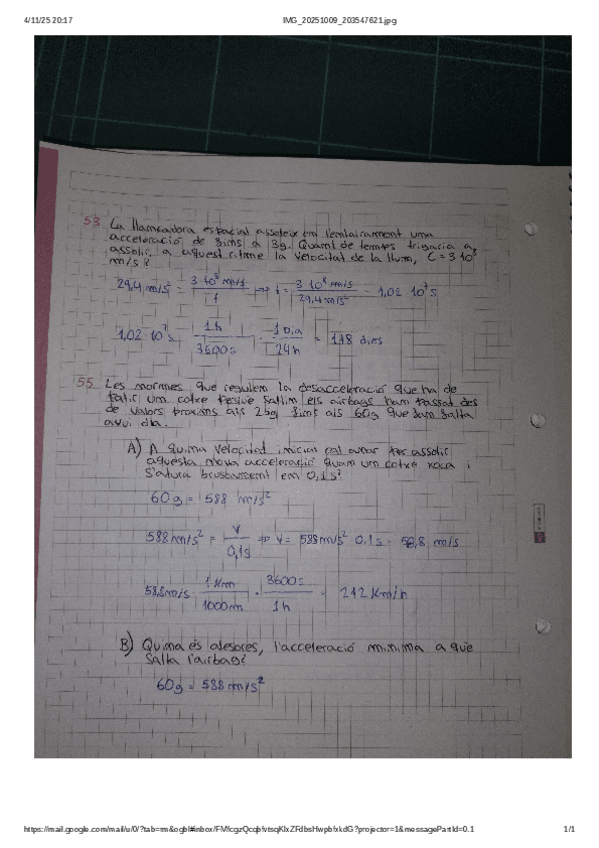 4/11/25 20:17
IMG_20251009_203547621.jpg
53. La llançadora espacial assoleix em l'enlairament uma
acceleració de fims a 3g. Quamt de temps trigaria a
assolir, a aquest ritme la velocitat de la llum, C = 3·10⁸
m/s?
29,4 m/s² = 3·10⁸ m/s / t => t = 3·10⁸ m/s / 29,4 m/s² = 1,02·10⁷ s
1,02·10⁷ s · 1h / 3600s · 1 Dia / 24h = 118 dies
55. Les mormes que regulem la desacceleració que ha de
patir um cotxe perquè saltim els airbags ham passat des
de valors proxims als 25g fims als 60g que fam saltar
avui dia.
A) A quima velocitat imicial cal amar per assolir
aquesta mova acceleració quam um cotxe xoca i
s'atura bruscamemt em 0,1s?
60g = 588 m/s²
588 m/s² = V / 0,1s => V = 588 m/s² · 0,1s = 58,8 m/s
58,8 m/s · 1 Km / 1000m · 3600s / 1h = 212 Km/h
B) Quima és aleshores, l'acceleració mímima a què
salta l'airbag?
60g = 588 m/s²
https://mail.google.com/mail/u/0/?tab=rm&ogbl#inbox/FMfcgzQcqbfvtsqKlxZFdbsHwpbfxkdG?projector=1&messagePartId=0.1
1/1